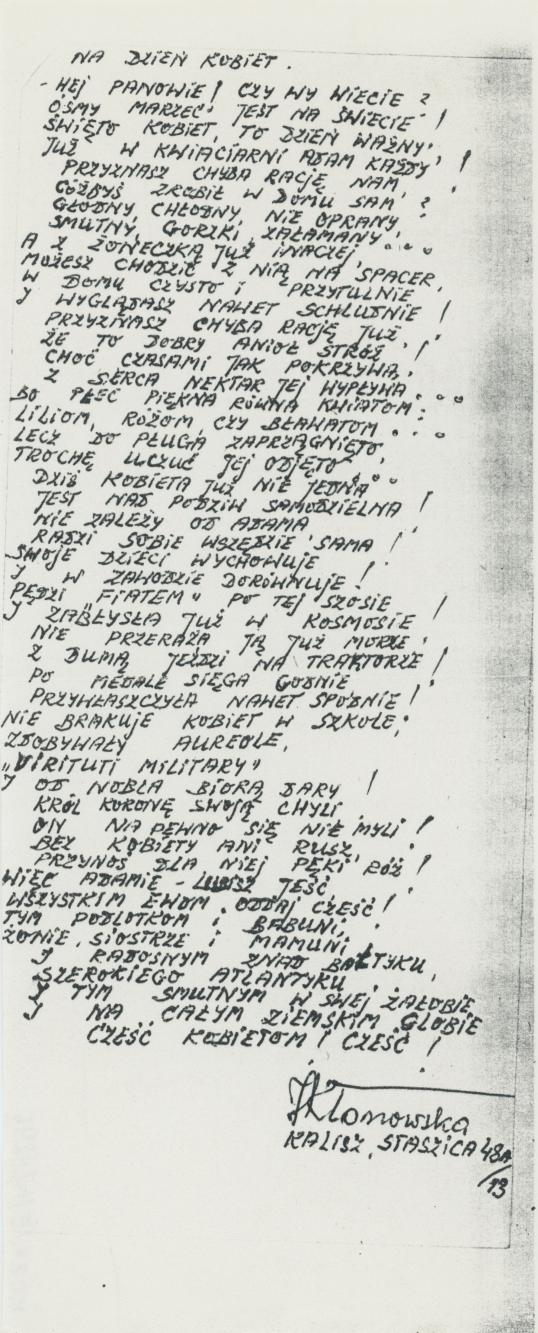 NA DZIEŃ KOBIET.
- HEJ PANOWIE! CZY WY WIECIE?
ÓSMY MARZEC JEST NA ŚWIECIE!
ŚWIĘTO KOBIET, TO DZIEŃ WAŻNY.
JUŻ W KWIACIARNI ADAM KAŻDY!
PRZYZNASZ CHYBA RACJĘ NAM,
CÓŻBYŚ ZROBIŁ W DOMU SAM?
GŁODNY, CHŁODNY, NIE OPRANY,
SMUTNY, GORZKI, ZAŁAMANY....
A Z ŻONECZKĄ JUŻ INACZEJ,
MOŻESZ CHODZIĆ Z NIĄ NA SPACER,
W DOMU CZYSTO I PRZYTULNIE
I WYGLĄDASZ NAWET SCHLUDNIE!
PRZYZNASZ CHYBA RACJĘ JUŻ,
ŻE TO DOBRY ANIOŁ STRÓŻ!
CHOĆ CZASAMI JAK POKRZYWA,
Z SERCA NEKTAR JEJ WYPŁYWA...
BO PŁEĆ PIĘKNA RÓWNA KWIATOM:
LILIOM, RÓŻOM, CZY BŁAWATOM...
LECZ DO PŁUGA ZAPRZĄGNIĘTO,
TROCHĘ UCZUĆ JEJ ODJĘTO...
DZIŚ KOBIETA JUŻ NIE JEDNA
JEST NAD PODZIW SAMODZIELNA!
NIE ZALEŻY OD ADAMA
RADZI SOBIE WSZĘDZIE SAMA!
SWOJE DZIECI WYCHOWUJE
I W ZAWODZIE DORÓWNUJE!
PĘDZI FIATEM" PO TEJ SZOSIE
I ZABŁYSŁA JUŻ W KOSMOSIE!
NIE PRZERAŻA JĄ JUŻ MORZE.
Z DUMĄ JEŹDZI NA TRAKTORZE!
PO MEDALE SIĘGA GODNIE
PRZYWŁASZCZYŁA NAWET SPODNIE!
NIE BRAKUJE KOBIET W SZKOLE,
ZDOBYWAŁY AUREOLE,
"VIRITUTI MILITARY"
I OD NOBLA BIORĄ DARY!
KRÓL KORONĘ SWOJĄ CHYLI
ON NA PEWNO SIĘ NIE MYLI!
BEZ KOBIETY ANI RUSZ
PRZYNOŚ DLA NIEJ PĘKI RÓŻ!
WIĘC ADAMIE - JEŚĆ
WSZYSTKIM EWOM ODDAJ CZEŚĆ!
TYM PODLOTKOM I BABUNI,
ŻONIE, SIOSTRZE I MAMUNI,
I RADOSNYM ZNAD BAŁTYKU,
SZEROKIEGO ATLANTYKU,
I TYM SMUTNYM W SWEJ ŻAŁOBIE,
I NA CAŁYM ZIEMSKIM GLOBIE
CZEŚĆ KOBIETOM! CZEŚĆ!
JKlonowska
KALISZ, STASZICA 48A
/13